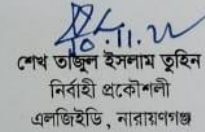 ১০.১১.২২
শেখ তাজুল ইসলাম তুহিন
নির্বাহী প্রকৌশলী
এলজিইডি, নারায়ণগঞ্জ